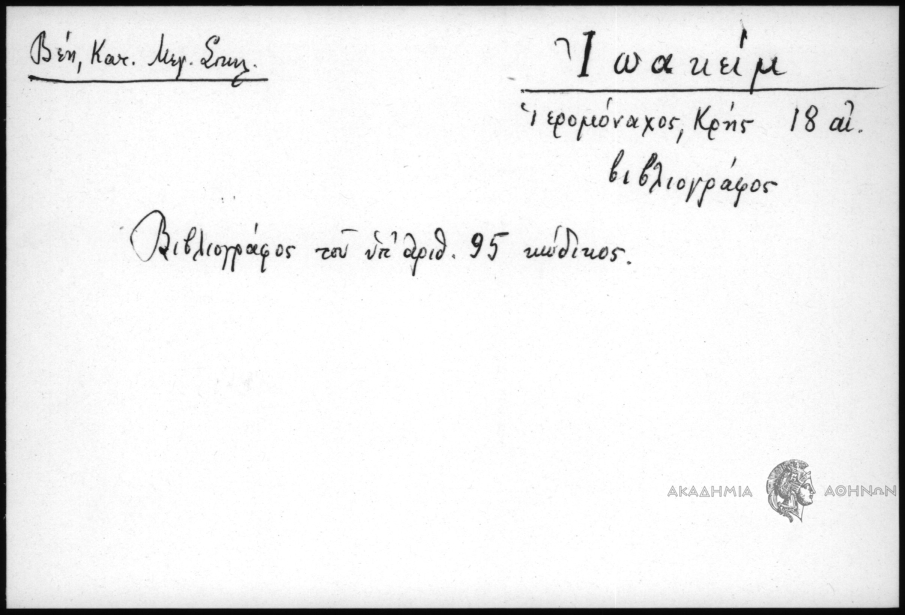 Βέη, Κατ. Μερ. Σπηλ.
Ἰωακείμ
ἱερομόναχος, Κρής 18 αἰ.
βιβλιογράφος
Βιβλιογράφος τοῦ ὑπ' ἀριθ. 95 κώδικος.
ΑΚΑΔΗΜΙΑ ΑΘΗΝΩΝ